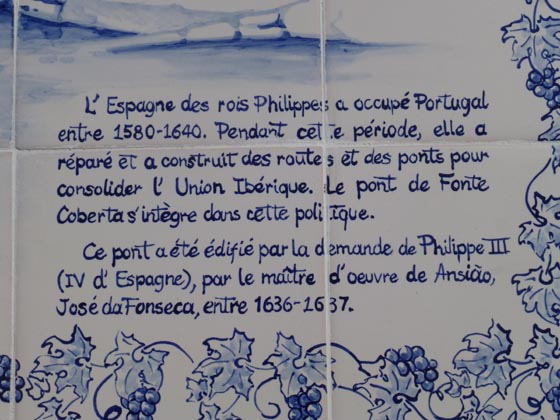 L' Espagne des rois Philippes a occupé Portugal
entre 1580-1640. Pendant cette période, elle a
réparé et a construit des routes et des ponts pour
consolider l' Union Ibérique. Le pont de Fonte
Coberta s'intègre dans cette politique.
Ce pont a été édifié par la demande de Philippe III
(IV d' Espagne), par le maître d'oeuvre de Ansião,
José da Fonseca, entre 1636-1637.